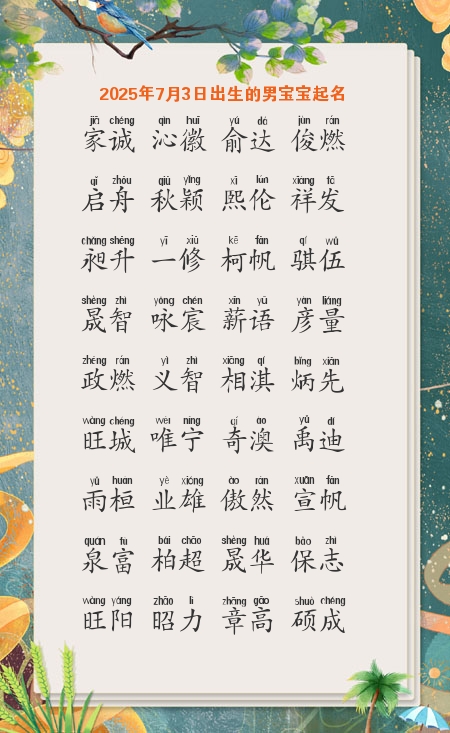 2025年7月3日出生的男宝宝起名
jiā chéng qìn huī yú dá jùn rán
家诚 沁徽 俞达 俊燃
qǐ zhōu qiū yǐng xī lún xiáng fā
启舟 秋颖 熙伦 祥发
chǎng shēng yī xiū kē fān qí wǔ
昶升 一修 柯帆 骐伍
shèng zhì yǒng chén xīn yǔ yàn liàng
晟智 咏宸 薪语 彦量
zhèng rán yì zhì xiāng qí bǐng xiān
政燃 义智 相淇 炳先
wàng chéng wéi níng qí ào yǔ dí
旺城 唯宁 奇澳 禹迪
yǔ huán yè xióng ào rán xuān fān
雨桓 业雄 傲然 宣帆
quán fù bǎi chāo shèng huá bǎo zhì
泉富 柏超 晟华 保志
wàng yáng zhāo lì zhāng gāo shuò chéng
旺阳 昭力 章高 硕成